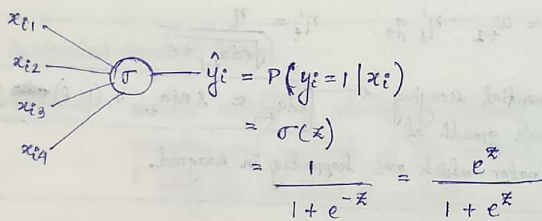 x_{i1}
x_{i2}
x_{i3}
x_{i4}
σ
ŷ_i = P(y_i = 1 | x_i)
= σ(z)
= 1 / (1 + e^{-z}) = e^z / (1 + e^z)